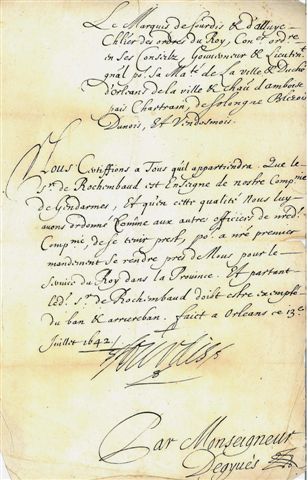 Le Marquis de Sourdis & d'alluye
Chler des ordres du Roy, Coner ordre
en ses Conseilz, Gouverneur & Lieutent
gnal pr sa Maté de La ville & Duché
d'orleans de la ville & Chau d'amboise
pais Chartrain, de Sologne Blesois
Dunois, Et Vendosmois.
Nous Certiffions a Tous quil appartiendra. Que le
sr. de Rochembaud est Enseigne de nostre Compnie
de Gendarmes, Et qu'en cette qualité Nous luy
auons ordonné Comme aux autres officiers de nred.
Compnie, de se tenir prest, por a nre premier
mandement se rendre prez de Nous pour le
seruice du Roy dans la Prouince. Et partant
led. sr. de Rochembaud doibt estre exempté
du ban & arriereban. faict a Orleans ce 13e
Juillet 1642 /
Par Monseigneur
Degyués